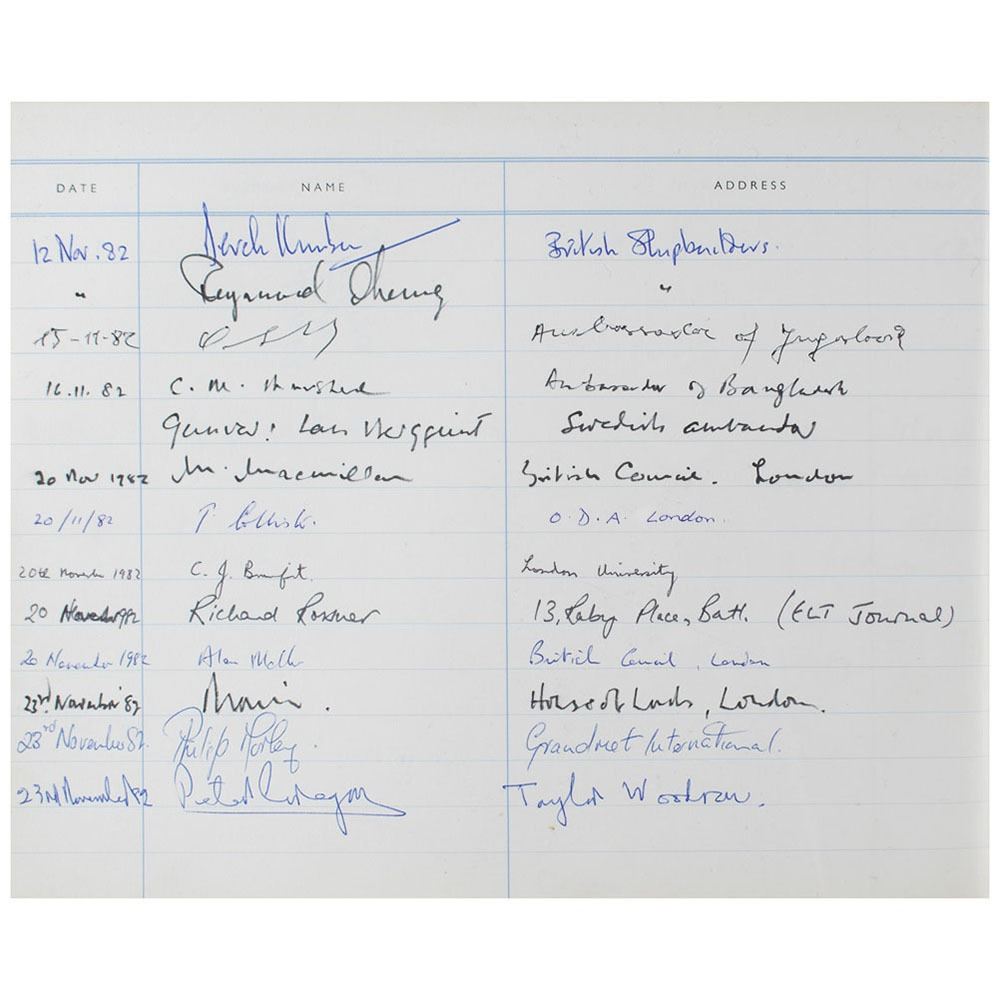 DATE NAME ADDRESS
12 Nov. 82 Derek British Shipbuilders.
" Raymond "
15-11-82 Ambassador of Yugoslavia
16.11.82 C. M. Ambassador of Bangladesh
Gunvor: Lars Swedish ambassador
20 Nov 1982 M. Macmillan British Council. London
20/11/82 T. O.D.A. London.
20th November 1982 C. J. Brumfit. London University
20 November 1982 Richard Rossner 13, Raby Place, Bath. (ELT Journal)
20 November 1982 Alan British Council, London
23rd November '82 House of Lords, London.
23rd November 82. Philip Morley. Grandmet International.
23rd November 82 Peter Taylor Woodrow.